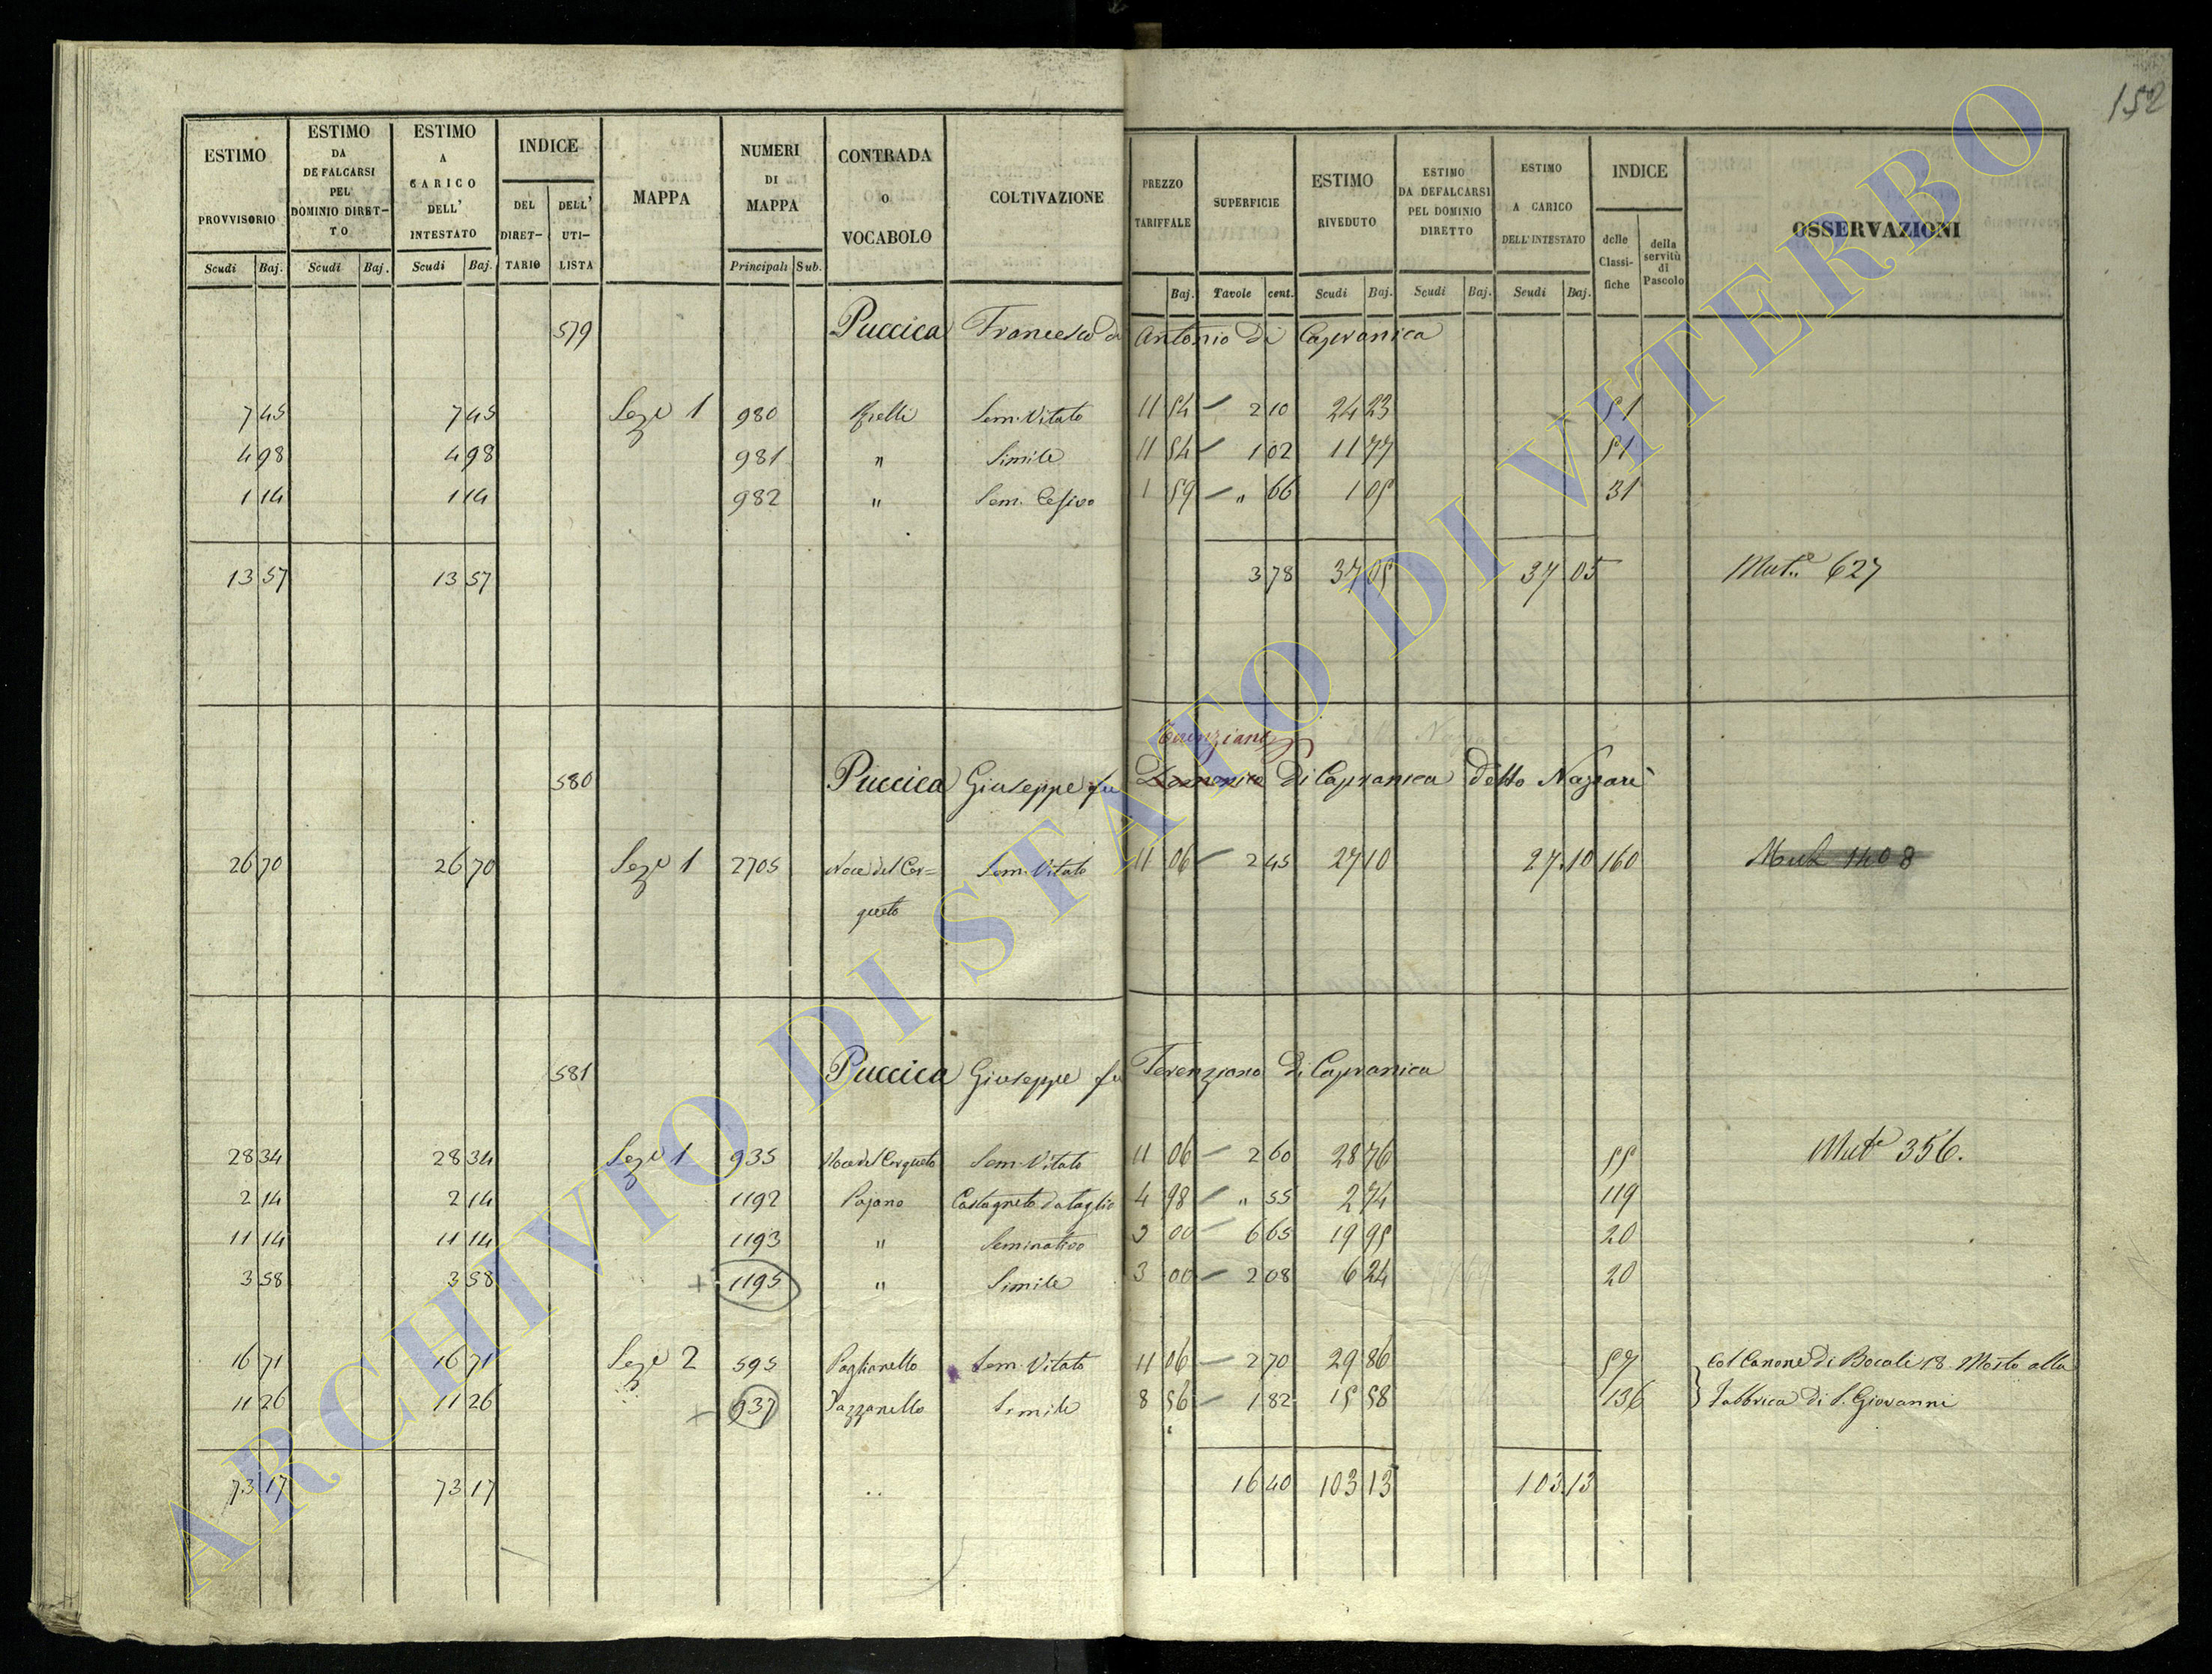 152
ESTIMO PROVVISORIO Scudi Baj.
ESTIMO DA DEFALCARSI PEL DOMINIO DIRET-TO Scudi Baj.
ESTIMO A CARICO DELL' INTESTATO Scudi Baj.
INDICE DEL DIRET-TARIO DELL' UTI-LISTA
MAPPA
NUMERI DI MAPPA Principali Sub.
CONTRADA o VOCABOLO
COLTIVAZIONE
PREZZO TARIFFALE Baj.
SUPERFICIE Tavole cent.
ESTIMO RIVEDUTO Scudi Baj.
ESTIMO DA DEFALCARSI PEL DOMINIO DIRETTO Scudi Baj.
ESTIMO A CARICO DELL'INTESTATO Scudi Baj.
INDICE delle Classi-fiche della servitù di Pascolo
OSSERVAZIONI
579 Puccica Francesco di Antonio di Capranica
7 45 7 45 Sez.e 1 980 Sem. Vitato 11 54 2 10 24 23 51
4 98 4 98 981 " Simile 11 54 1 02 11 77 51
1 14 1 14 982 " Sem. Cesivo 1 59 " 66 1 05 31
13 57 13 57 3 78 37 05 37 05 Mut.e 627
Terenziano
580 Puccica Giuseppe fu Domenico di Capranica detto Nazzarè
26 70 26 70 Sez.e 1 2705 Noce del Cer= Sem. Vitato 11 06 2 45 27 10 27.10 160 Mut. 1408
queto
581 Puccica Giuseppe fu Terenziano di Capranica
28 34 28 34 Sez.e 1 935 Noce del Cerqueto Sem. Vitato 11 06 2 60 28 76 55 Mut.e 356.
2 14 2 14 1192 Pajano Castagneto da taglio 4 98 " 55 2 74 119
11 14 11 14 1193 " Seminativo 3 00 6 65 19 95 20
3 58 3 58 + 1195 " Simile 3 00 2 08 6 24 20
16 71 16 71 Sez.e 2 595 Paglianello Sem. Vitato 11 06 2 70 29 86 57 Col Canone di Bocali 18 Mosto alla
11 26 11 26 + 937 Pazzanello Simile 8 56 1 82 15 58 136 Fabbrica di S. Giovanni
73 17 73 17 16 40 103 13 103.13
ARCHIVIO DI STATO DI VITERBO